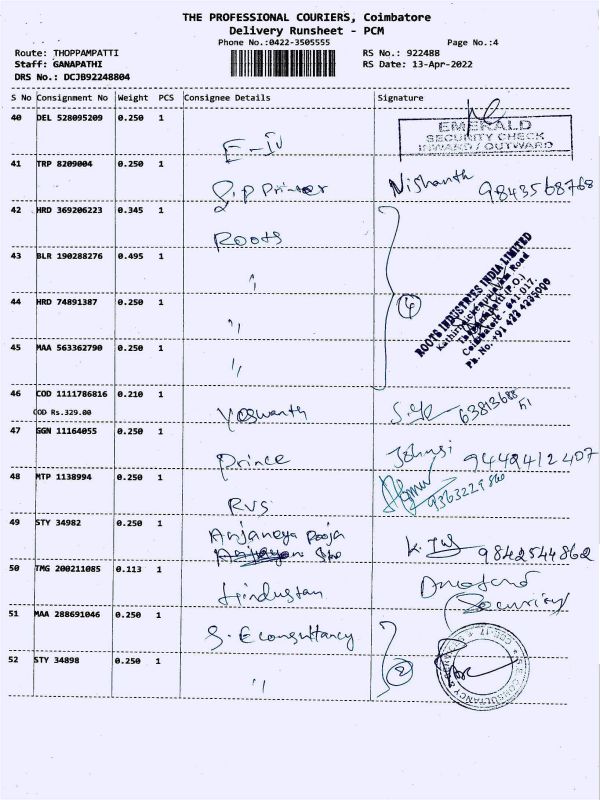 THE PROFESSIONAL COURIERS, Coimbatore
Delivery Runsheet - PCM
Phone No.:0422-3505555 Page No.:4
Route: THOPPAMPATTI RS No.: 922488
Staff: GANAPATHI RS Date: 13-Apr-2022
DRS No.: DCJB92248804
S No Consignment No Weight PCS Consignee Details Signature
40 DEL 528095209 0.250 1 E-IV
EMERALD
SECURITY CHECK
INWARD / OUTWARD
41 TRP 8209004 0.250 1 S.P Printer Nishanth 9843568768
42 HRD 369206223 0.345 1 Roots
43 BLR 190288276 0.495 1 "
44 HRD 74891387 0.250 1 "
45 MAA 563362790 0.250 1 "
4
ROOTS INDUSTRIES INDIA LIMITED
Kathirnaickenpalayam Road
Thoppampatti (P.O.)
Coimbatore - 641 017.
Ph. No. +91 422 4235000
46 COD 1111786816 0.210 1 Yoswanth
COD Rs.329.00
47 GGN 11164055 0.250 1 Prince Johnsi 9442412407
48 MTP 1138994 0.250 1 RVS 9363229860
49 STY 34982 0.250 1 Anjaneya Pooja 9842544862
50 TMG 200211085 0.113 1 Hindustan
Security
51 MAA 288691046 0.250 1 S. E consultancy
52 STY 34898 0.250 1 "
2